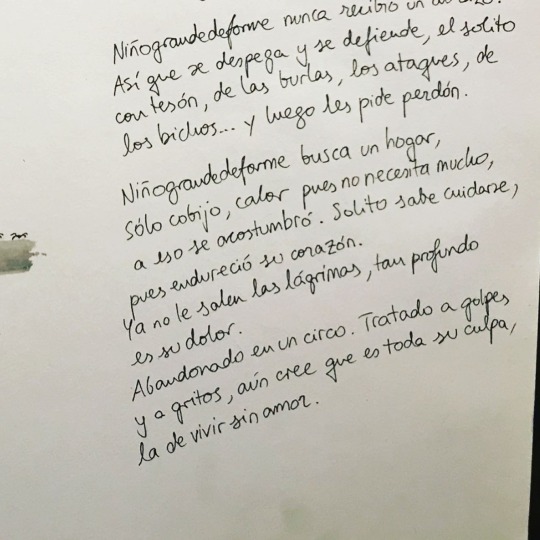 Niñograndedeforme nunca recibió un
Así que se despega y se defiende, el solito
con tesón, de las burlas, los ataques, de
los bichos... y luego les pide perdón.
Niñograndedeforme busca un hogar,
sólo cobijo, calor pues no necesita mucho,
a eso se acostumbró. Solito sabe cuidarse,
pues endureció su corazón.
Ya no le salen las lágrimas, tan profundo
es su dolor.
Abandonado en un circo. Tratado a golpes
y a gritos, aún cree que es toda su culpa,
la de vivir sin amor.